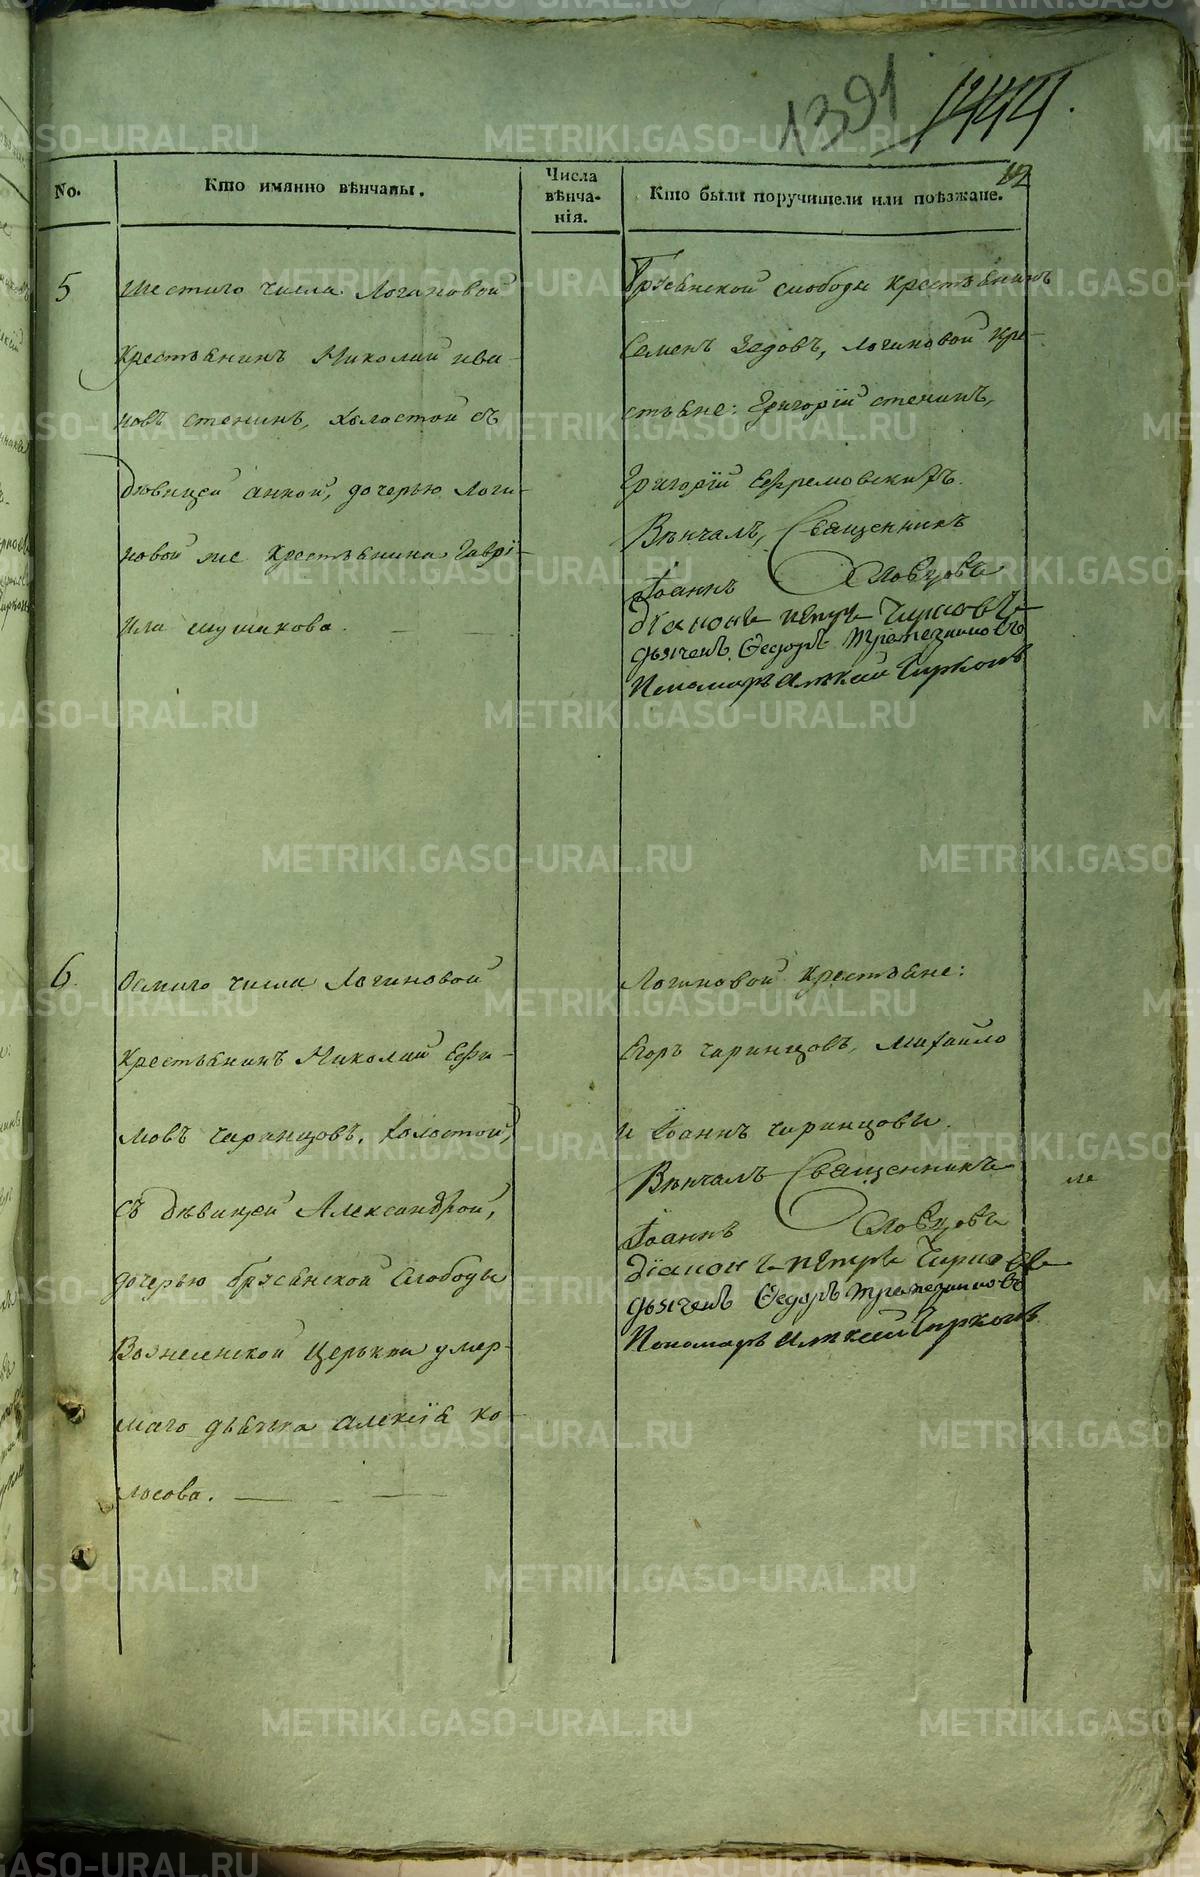 1391 1444.
12
No.
Кто имянно вѣнчаны.
Числа вѣнча-нія.
Кто были поручители или поѣзжане.
5
Шестаго числа Логиновой
крестьянинъ Николай Ива-
новъ Стенинъ, холостой съ
дѣвицей Анной, дочерью Логи-
новой же крестьянина Гаврі-
ила Шушакова. — —
Брусянской слободы крестьянинъ
Семенъ Задовъ, Логиновой кре-
стьяне: Григорій Стенинъ,
Григорій Ефремовскихъ.
Вѣнчалъ, Священникъ
Іоаннъ Словцовъ
Діаконъ Петръ Чирковъ
Дьячекъ Ѳедоръ Трапезниковъ
Пономарь Алексѣй Чирковъ
6.
Осмаго числа Логиновой
крестьянинъ Николай Ефи-
мовъ Чаринцовъ, холостой,
съ дѣвицей Александрой,
дочерью Брусянской слободы
Вознесенской церькви умер-
шаго дьячка Алексія Ко-
лосова. — - —
Логиновой крестьяне:
Егоръ Чаринцовъ, Михайло
и Іоаннъ Чаринцовы.
Вѣнчалъ Священникъ
Іоаннъ Словцовъ
Діаконъ Петръ Чирковъ
Дьячекъ Ѳедоръ Трапезниковъ
Пономарь Алексѣй Чирковъ
METRIKI.GASO-URAL.RU